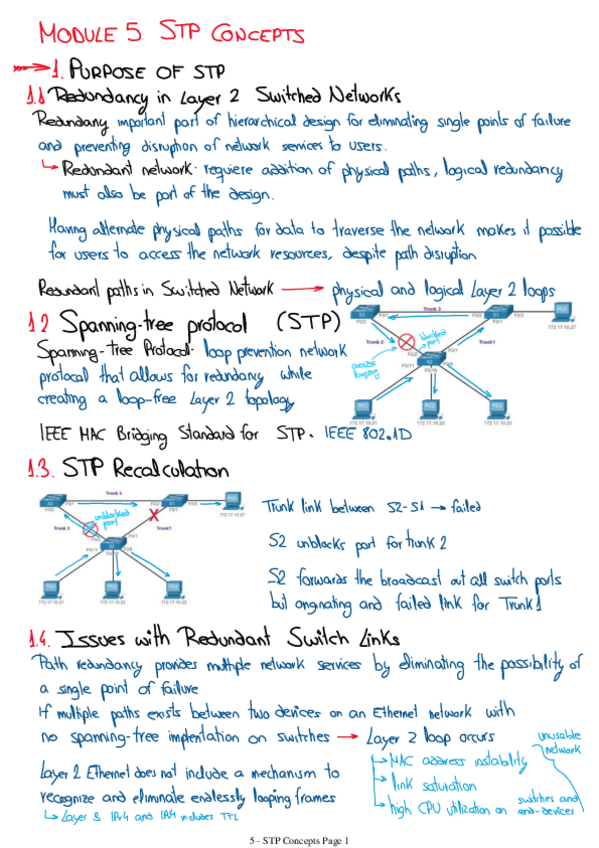 MODULE 5 STP CONCEPTS
1. PURPOSE OF STP
1.1 Redundancy in Layer 2 Switched Networks
Redundany important part of hierarchical design for eliminating single points of failure
and preventing disruption of network services to users.
Redundant network: requiere addition of physical paths, logical redundancy
must also be part of the design.
Having alternate physical paths for data to traverse the network makes it possible
for users to access the network resources, despite path disruption
Redundant paths in Switched Network → physical and logical Layer 2 loops
1.2 Spanning-tree protocol (STP)
Spanning-Tree Protocol: loop prevention network
protocol that allows for redundancy while
creating a loop-free Layer 2 topology
Trunk 3
S3
F0/1
S1
F0/3
172.17.10.27
F0/2
F0/1
Trunk 2
blocked
port
Trunk1
F0/2
F0/1
S2
avoids
looping
F0/11
F0/6
F0/18
172.17.10.21
172.17.10.22
172.17.10.23
IEEE MAC Bridging Standard for STP. IEEE 802.1D
1.3. STP Recalculation
Trunk 3
F0/1
172.17.10.27
F0/2
unblocked
port
Trunk 2
X
Trunk1
F0/1
F0/11
172.17.10.21
172.17.10.22
172.17.10.23
Trunk link between S2-S1 → failed
S2 unblocks port for trunk 2
S2 forwards the broadcast out all switch ports
but originating and failed link for Trunk1
1.4. Issues with Redundant Switch Links
Path redundancy provides multiple network services by eliminating the possibility of
a single point of failure
If multiple paths exists between two devices on an Ethernet network with
no spanning-tree implentation on switches → Layer 2 loop occurs
unusable
network
MAC address instability
link saturation
high CPU utilization on switches and
end-devices
Layer 2 Ethernet does not include a mechanism to
recognize and eliminate endlessly looping frames
Layer 3 IPv4 and IPv4 includes TTL
5 - STP Concepts Page 1